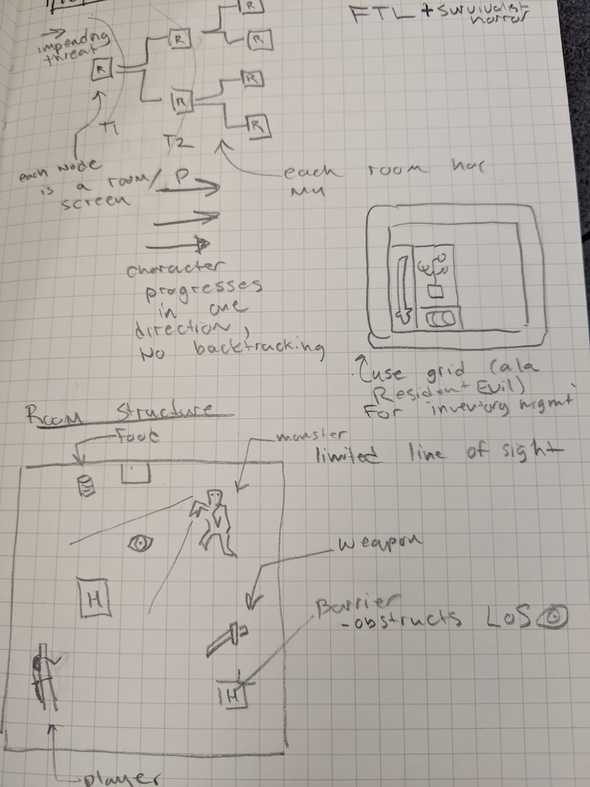 FTL + Survivalist
horror
impending
threat
R
R
R
R
R
R
R
T1
T2
each node
is a room/
screen
P
each room has
character
progresses
in one
direction,
No backtracking
(use grid (ala
Resident Evil)
For inventory mgmt
Room Structure
Food
monster
limited line of sight
weapon
H
Barrier
-obstructs LoS
H
player